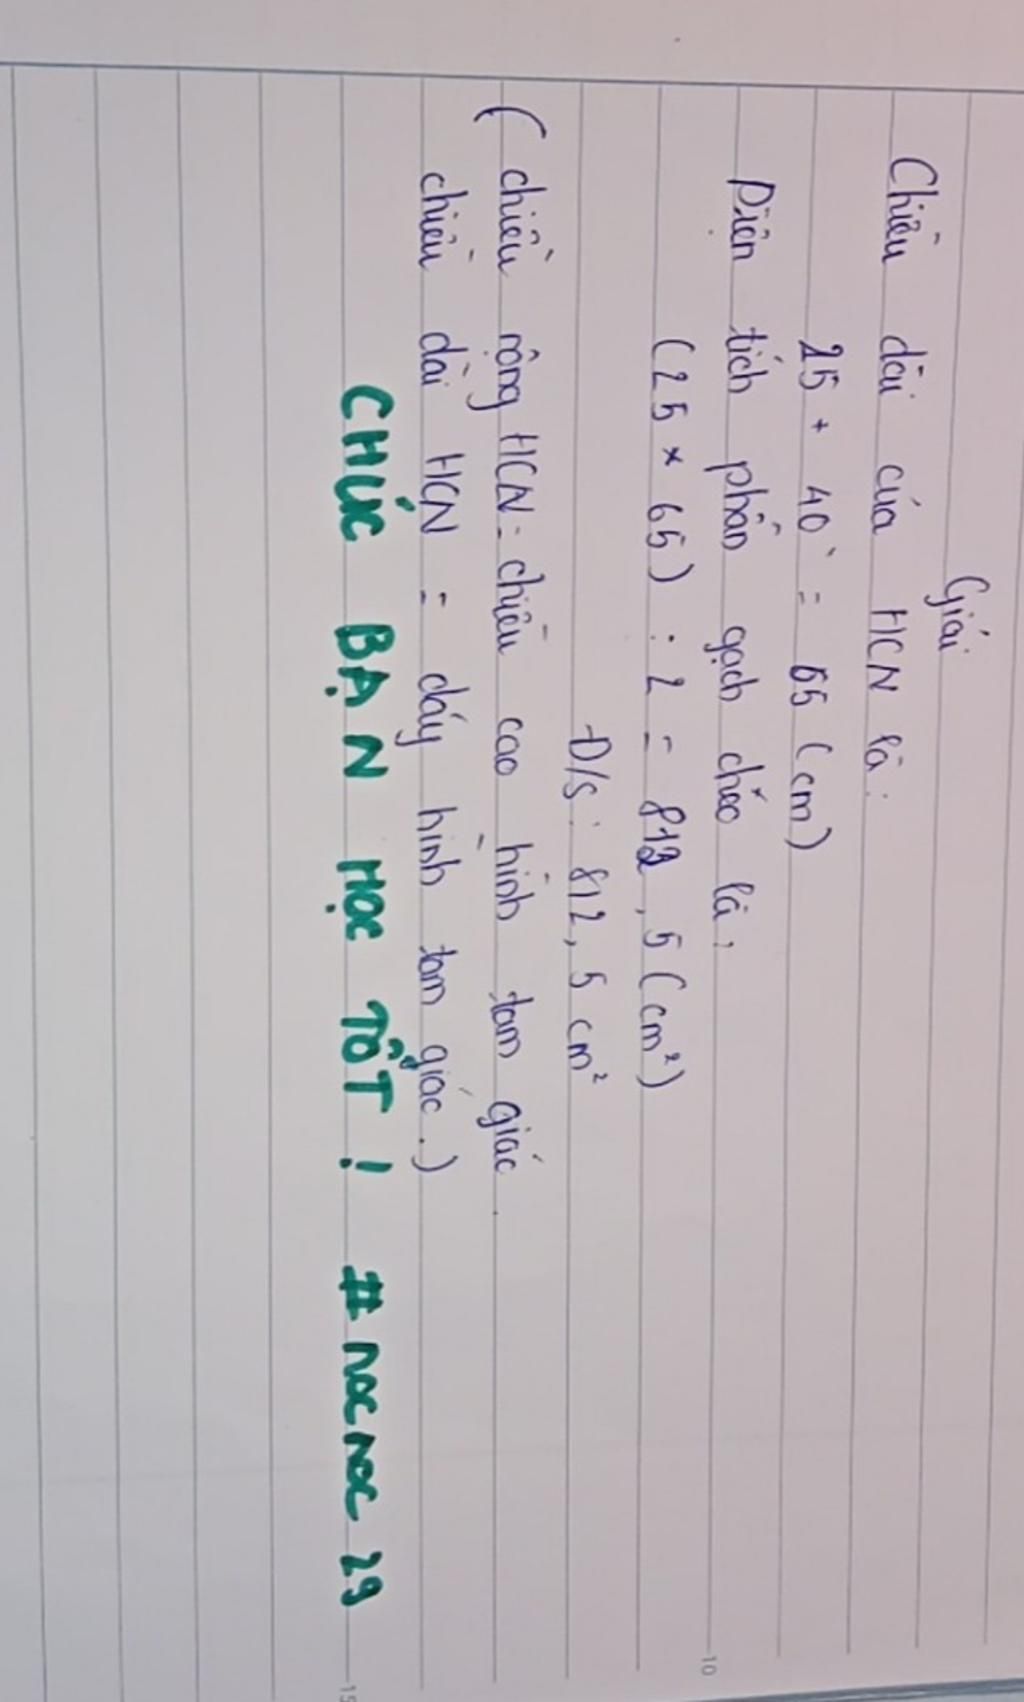 Giải
Chiều dài của HCN là:
25 + 40 = 65 (cm)
Diện tích phần gạch chéo là:
(25 × 65) : 2 = 812,5 (cm²)
Đ/s: 812,5 cm²
( chiều rộng HCN = chiều cao hình tam giác
chiều dài HCN = đáy hình tam giác.)
CHÚC BẠN HỌC TỐT! #nocnoc29
10
15